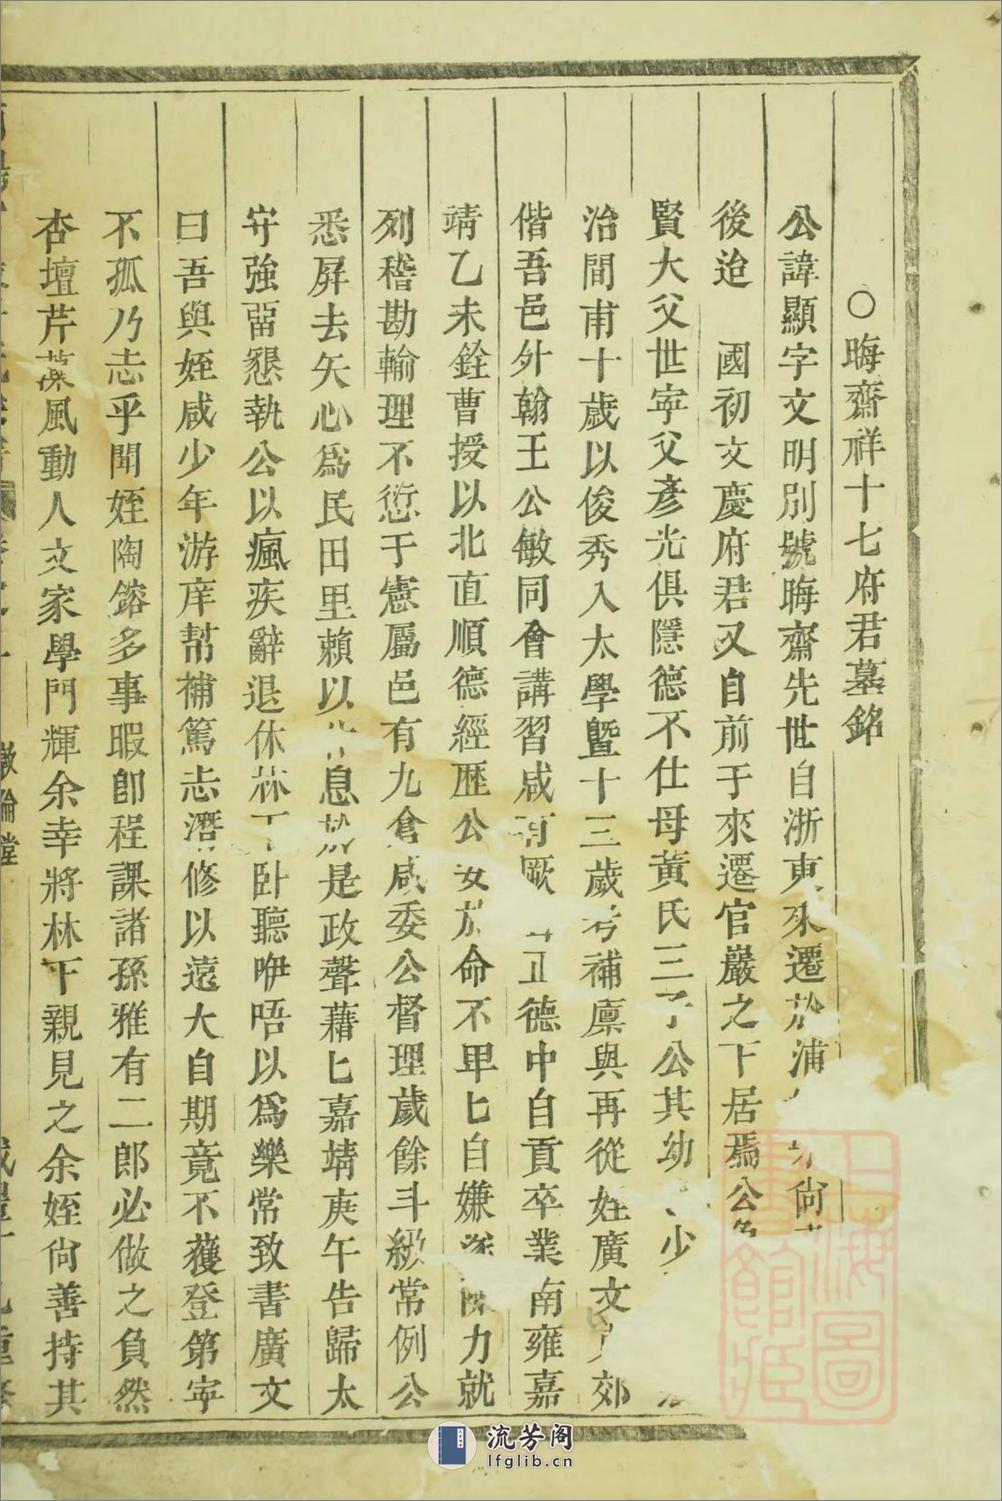 ○晦齋祥十七府君墓銘
公諱顯字文明別號晦齋先世自浙東來遷於浦尙
後迨 國初文慶府君又自前于來遷官巖之下居焉公
賢大父世寜父彥光俱隱德不仕母黃氏三子公其幼少
治間甫十歲以俊秀入太學曁十三歲考補廪與再從姪廣文郊
偕吾邑外翰王公敏同會講習咸有厥正德中自貢卒業南雍嘉
靖乙未銓曹授以北直順德經歷公安於命不甲匕自嫌力就
列稽勘輸理不愆于憲屬邑有九倉咸委公督理歲餘斗級常例公
悉屏去矢心爲民田里賴以息於是政聲藉匕嘉靖庚午告歸太
守強畱懇執公以瘋疾辭退休林下卧聽咿唔以爲樂常致書廣文
曰吾與姪咸少年游庠幇補篤志潛修以遠大自期竟不獲登第寜
不孤乃志乎聞姪陶鎔多事暇卽程課諸孫雅有二郎必做之負然
杏壇芹藻風動人文家學門輝余幸將林下親見之余姪尙善持其
敦倫堂
上海圖書館藏
流芳阁
lfglib.cn